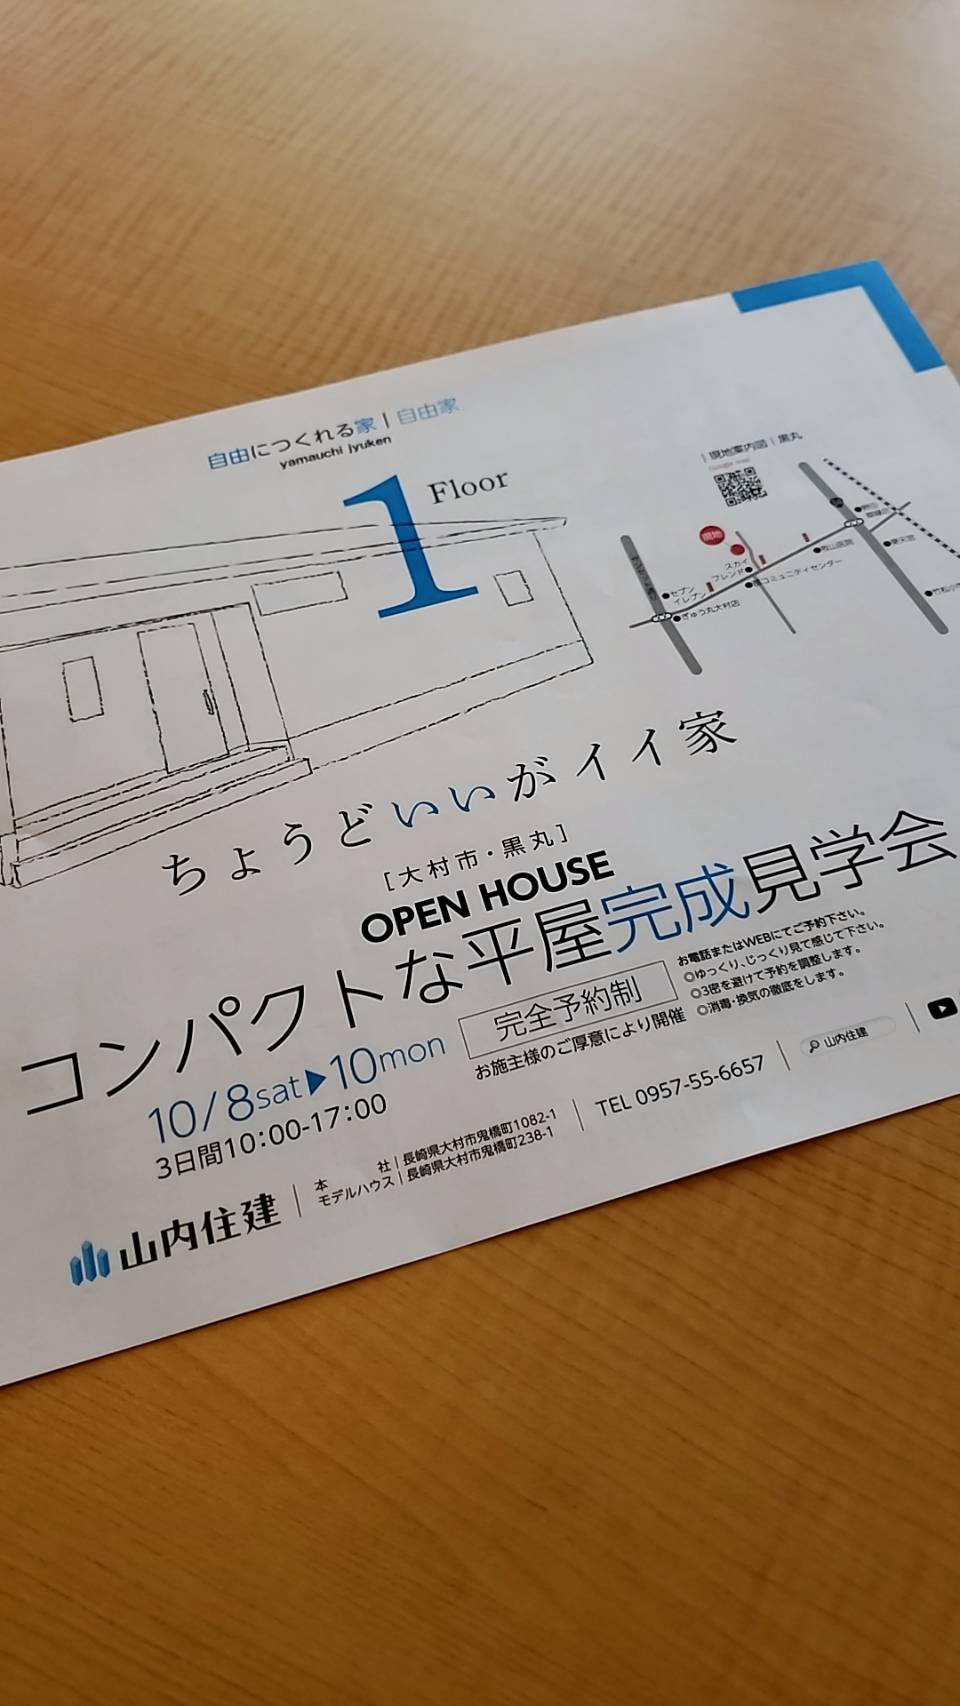 自由につくれる家｜自由家
yamauchi jyuken
1 Floor
｜現地案内図｜黒丸
Google map
現地
スカイ
フレンド
セブン
イレブン
ぎゅう丸大村店
コミュニティセンター
ちょうどいいがイイ家
［大村市・黒丸］
OPEN HOUSE
コンパクトな平屋完成見学会
10/8sat▶10mon
3日間10:00-17:00
完全予約制
お施主様のご厚意により開催
お電話またはWEBにてご予約下さい。
◎ゆっくり、じっくり見て感じて下さい。
◎3密を避けて予約を調整します。
◎消毒・換気の徹底をします。
山内住建
本社｜長崎県大村市鬼橋町1082-1
モデルハウス｜長崎県大村市鬼橋町238-1
TEL 0957-55-6657
山内住建